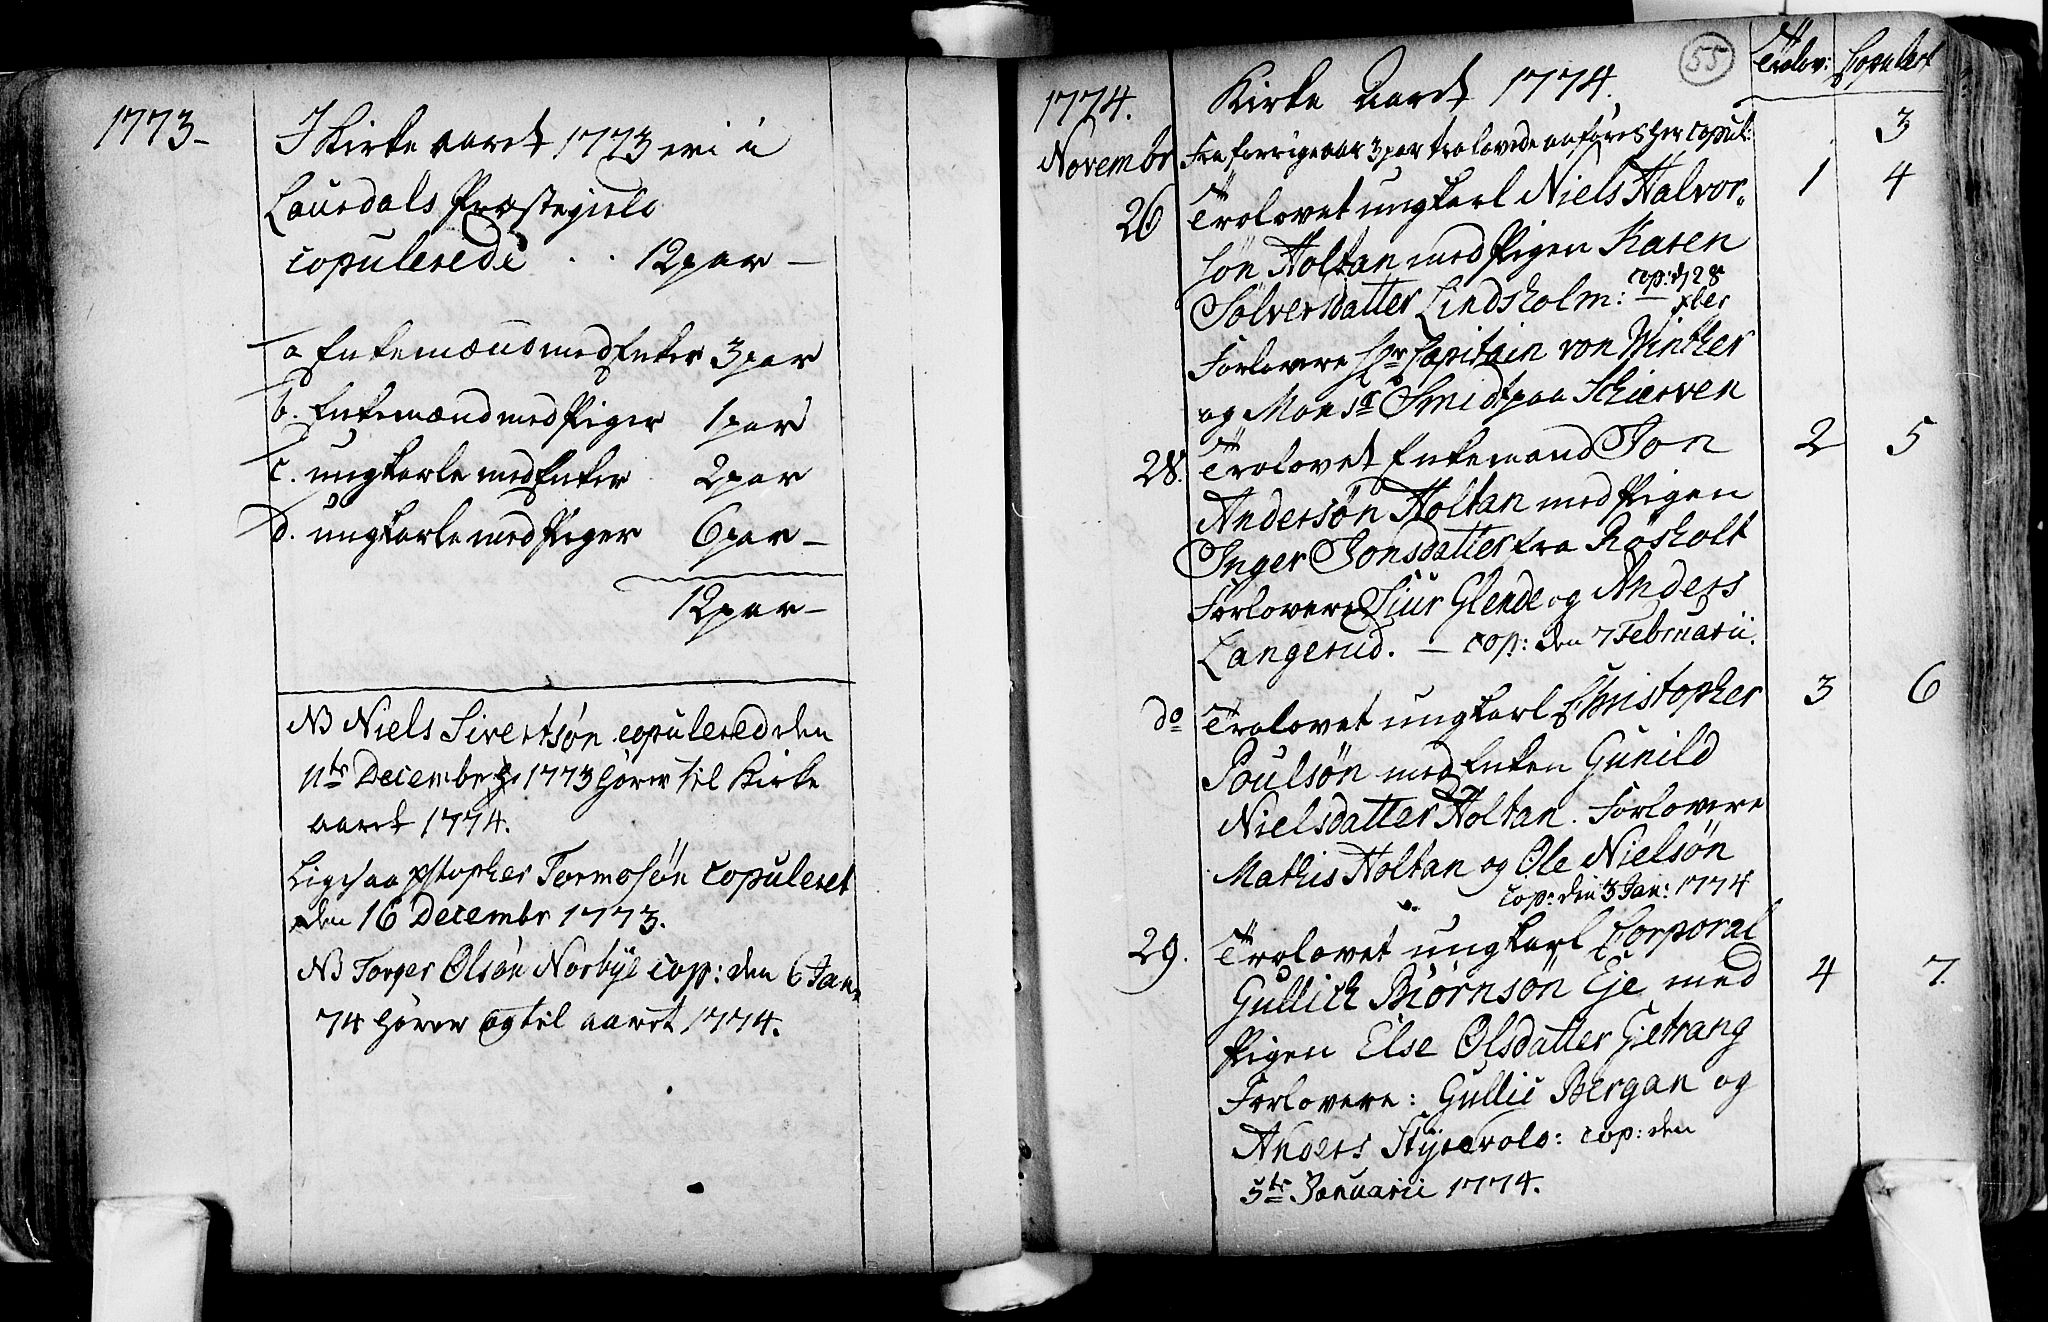 1773-
I Kirke aaret 1773 eri i
Laurdals Præstegield
copulerede . . 12 par -
a Enkemænd med Enker 3 par
b. Enkemænd med Piger 1 par
c. ungkarle med Enker 2 par
d. ungkarle med Piger 6 par -
12 par -
NB Niels Sivertsøn copulered den
11te Decembr 1773 hører til Kirke
aaret 1774.
Ligesaa Xstopher Tormosøn copuleret
den 16 Decembr 1773.
NB Torger Olsøn Norbÿe cop: den 6 Jan:
74 hører og til aaret 1774.
55
Trolov: Copulert
1774. Kirke Aaret 1774.
Novembr Fra forrige aar 3 par trolovede anføres her copul: 3
26 Trolovet ungkarl Niels Halvor- 1 4
søn Holtan med Pigen Karen
Sølversdatter Lindsholm: cop: d 28
xber
Forlovere Hr Capitain von Winther
og Monsr Smidt paa Schierven
28. Trolovet Enkemand Jon 2 5
Andersøn Holtan med Pigen
Inger Jonsdatter fra Røsholt
Forlovere Siur Glende og Anders
Langerud. - cop: den 7 Februarii.
do Trolovet ungkarl Christopher 3 6
Poulsøn med Enken Gunild
Nielsdatter Holtan. Forlovere
Mathis Holtan og Ole Nielsøn
cop: den 3 Jan: 1774
29. Trolovet ungkarl Corporal
Gullich Biørnsøn Eje med 4 7.
Pigen Else Olsdatter Gietrang
Forlovere: Gullic Bergan og
Anders Stÿrevold: cop: den
5te Januarii 1774.